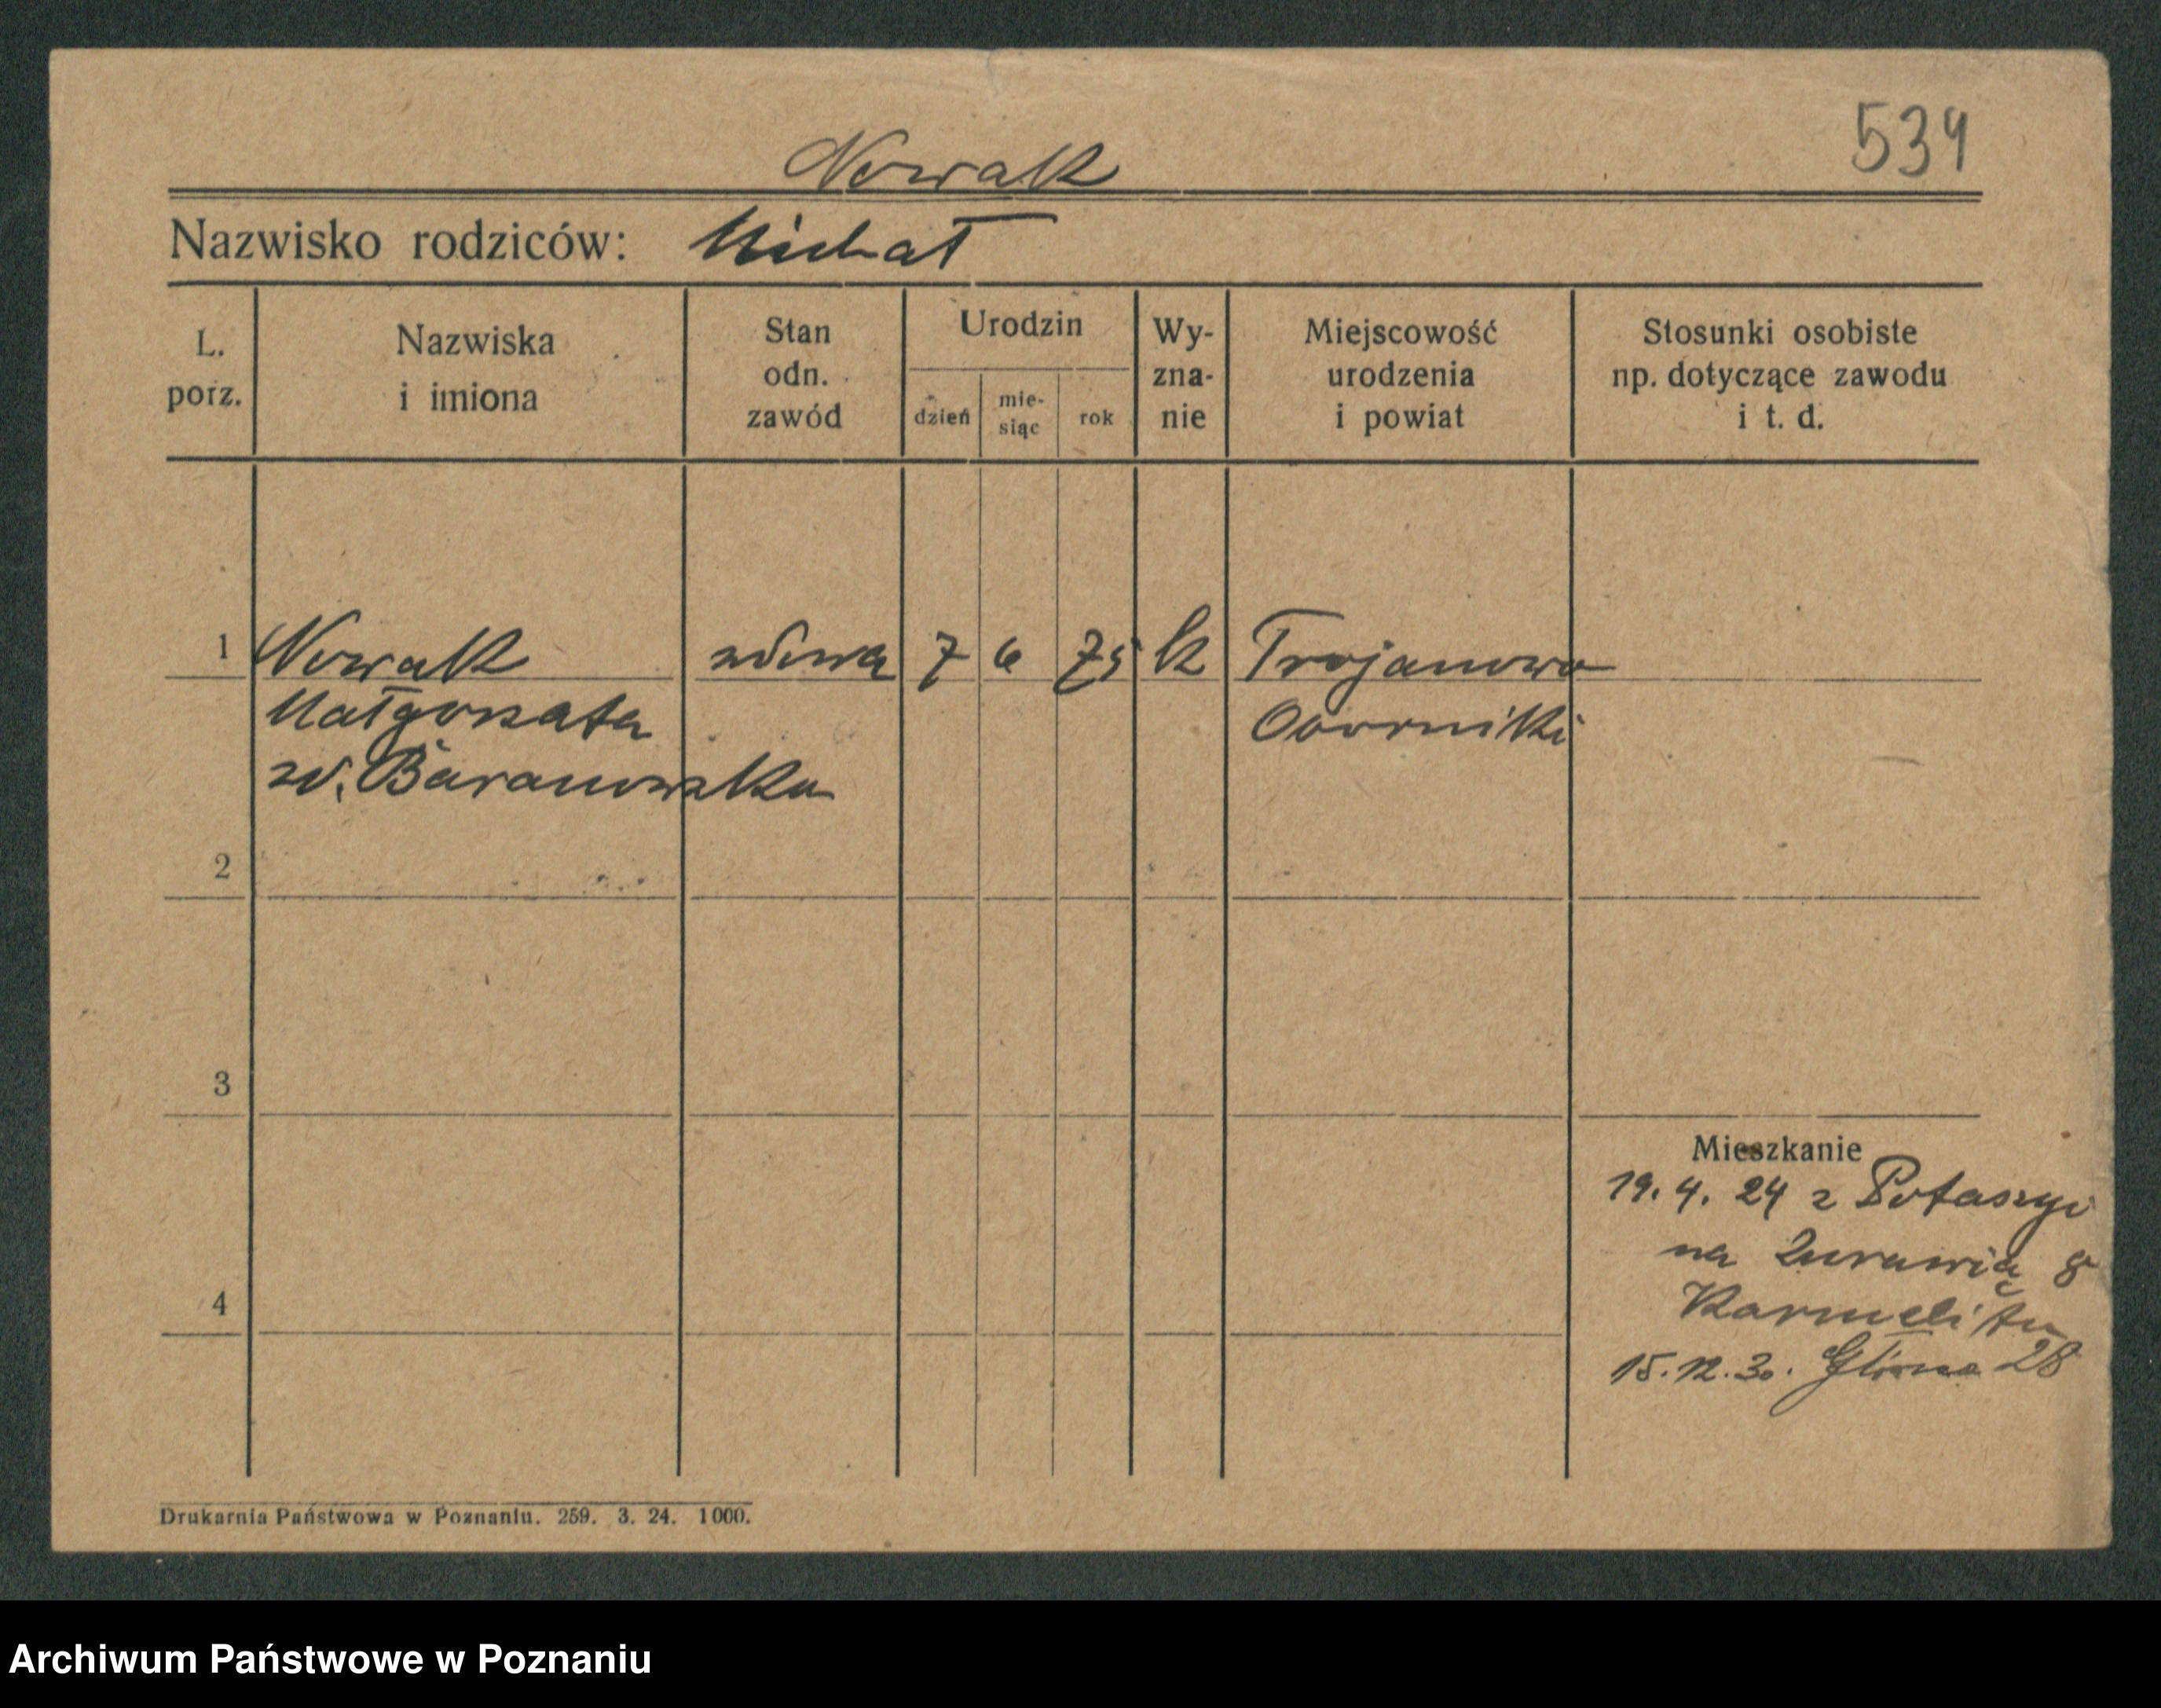 534
Nowak
Nazwisko rodziców: Michał
L. porz.
Nazwiska i imiona
Stan odn. zawód
Urodzin
dzień
mie-
siąc
rok
Wy-
zna-
nie
Miejscowość urodzenia i powiat
Stosunki osobiste np. dotyczące zawodu i t. d.
1 Nowak wdowa 7 6 75 k Trojanowo
Małgorzata Oborniki
zd. Baranowska
2
3
4
Mieszkanie
19. 4. 24 z Potaszyc
na Żurawią 8
15. 12. 30. 28
Drukarnia Państwowa w Poznaniu. 259. 3. 24. 1000.
Archiwum Państwowe w Poznaniu